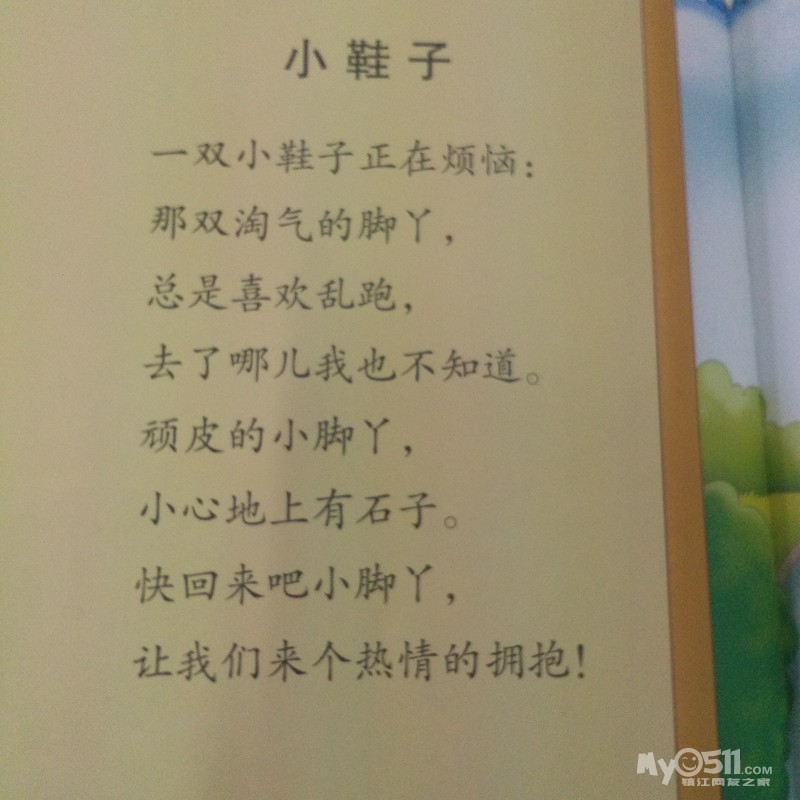 小鞋子
一双小鞋子正在烦恼：
那双淘气的脚丫，
总是喜欢乱跑，
去了哪儿我也不知道。
顽皮的小脚丫，
小心地上有石子。
快回来吧小脚丫，
让我们来个热情的拥抱！
My0511.COM
镇江网友之家